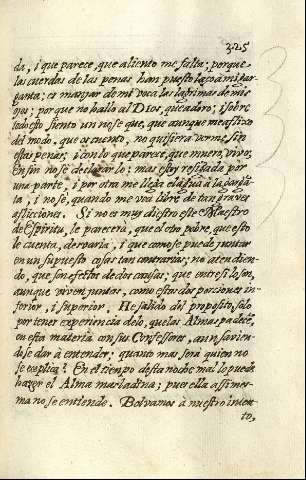 325
da, i que parece, que aliento me falta; porque
las cuerdas de las penas han puesto laço à mi gar-
ganta; es manjar de mi voca las lagrimas de mis
ojos; porque no hallo al Dios, que adoro; i sobre
todo esto siento un no se que, que aunque me aflixo
del modo, que os cuento, no quisiera verme sin
estas penas; i con lo que parece, que muero, vivo.
En fin no se declararlo; mas estoy resignada por
una parte, i por otra me llega el agua à la gargã-
ta, i no se, quando me vea libre de tan graves
aflicciones. Si no es mui diestro este Maestro
de Espiritu, le parecerà, que el otro pobre, que esto
le cuenta, desvarìa, i que como se puede juntar
en un supuesto cosas tan contrarias; no atendien-
do, que son efectos de dos causas; que entre si lo son,
aunque viven juntas, como estas dos porciones in-
ferior, i superior. He salido del proposito, solo
por tener experiencia de lo, que las Almas padecẽ,
en esta materia con sus Confessores, aun savien-
dose dar à entender; quanto mas serà quien no
se explica? En el tiempo desta noche mal lo puede
hazer el Alma mas ladina; pues ella assi mes-
ma no se entiende. Bolvamos à nuestro inten-
to,